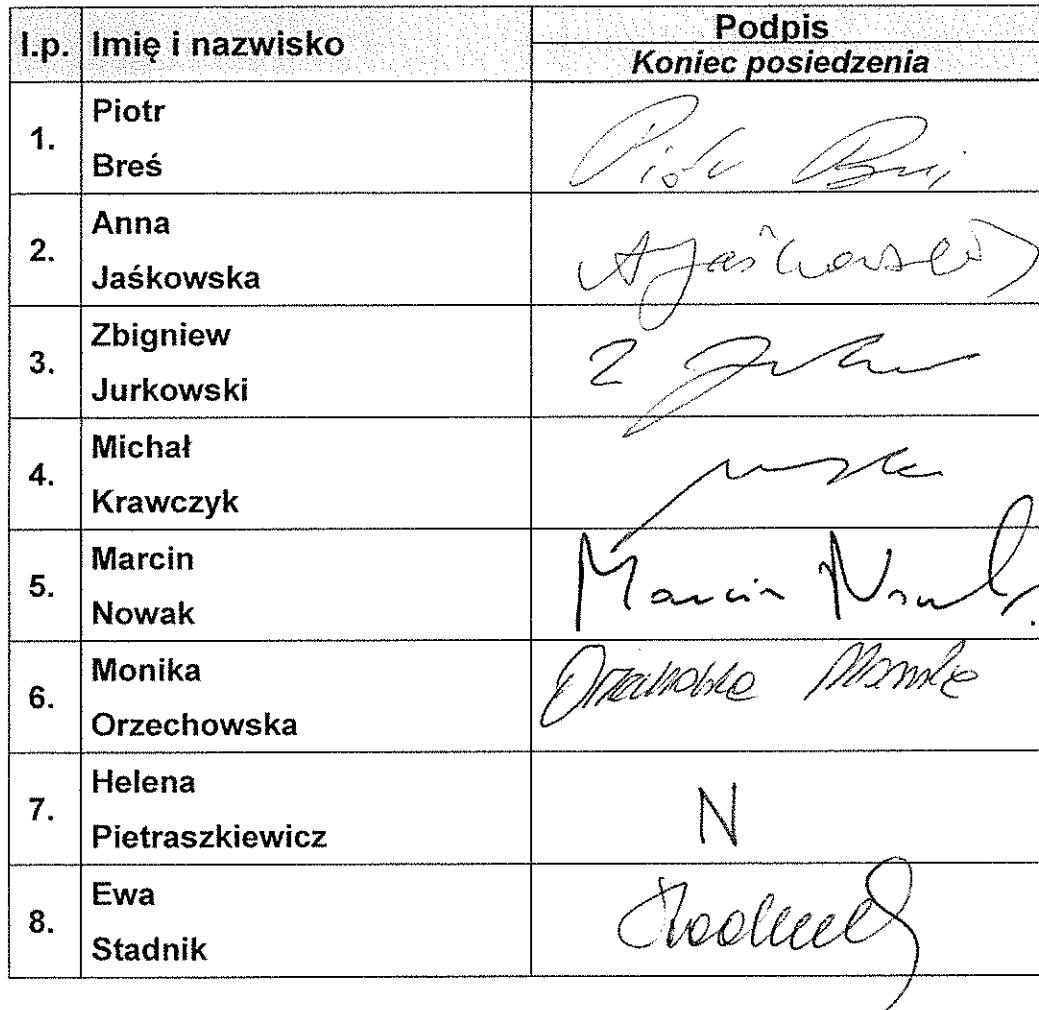 l.p. Imię i nazwisko Podpis
Koniec posiedzenia
1. Piotr
Breś
Piotr Breś
2. Anna
Jaśkowska
AJaśkowska
3. Zbigniew
Jurkowski
Z
4. Michał
Krawczyk
5. Marcin
Nowak
Marcin Nowak
6. Monika
Orzechowska
Orzechowska Monika
7. Helena
Pietraszkiewicz
N
8. Ewa
Stadnik
Stadnik